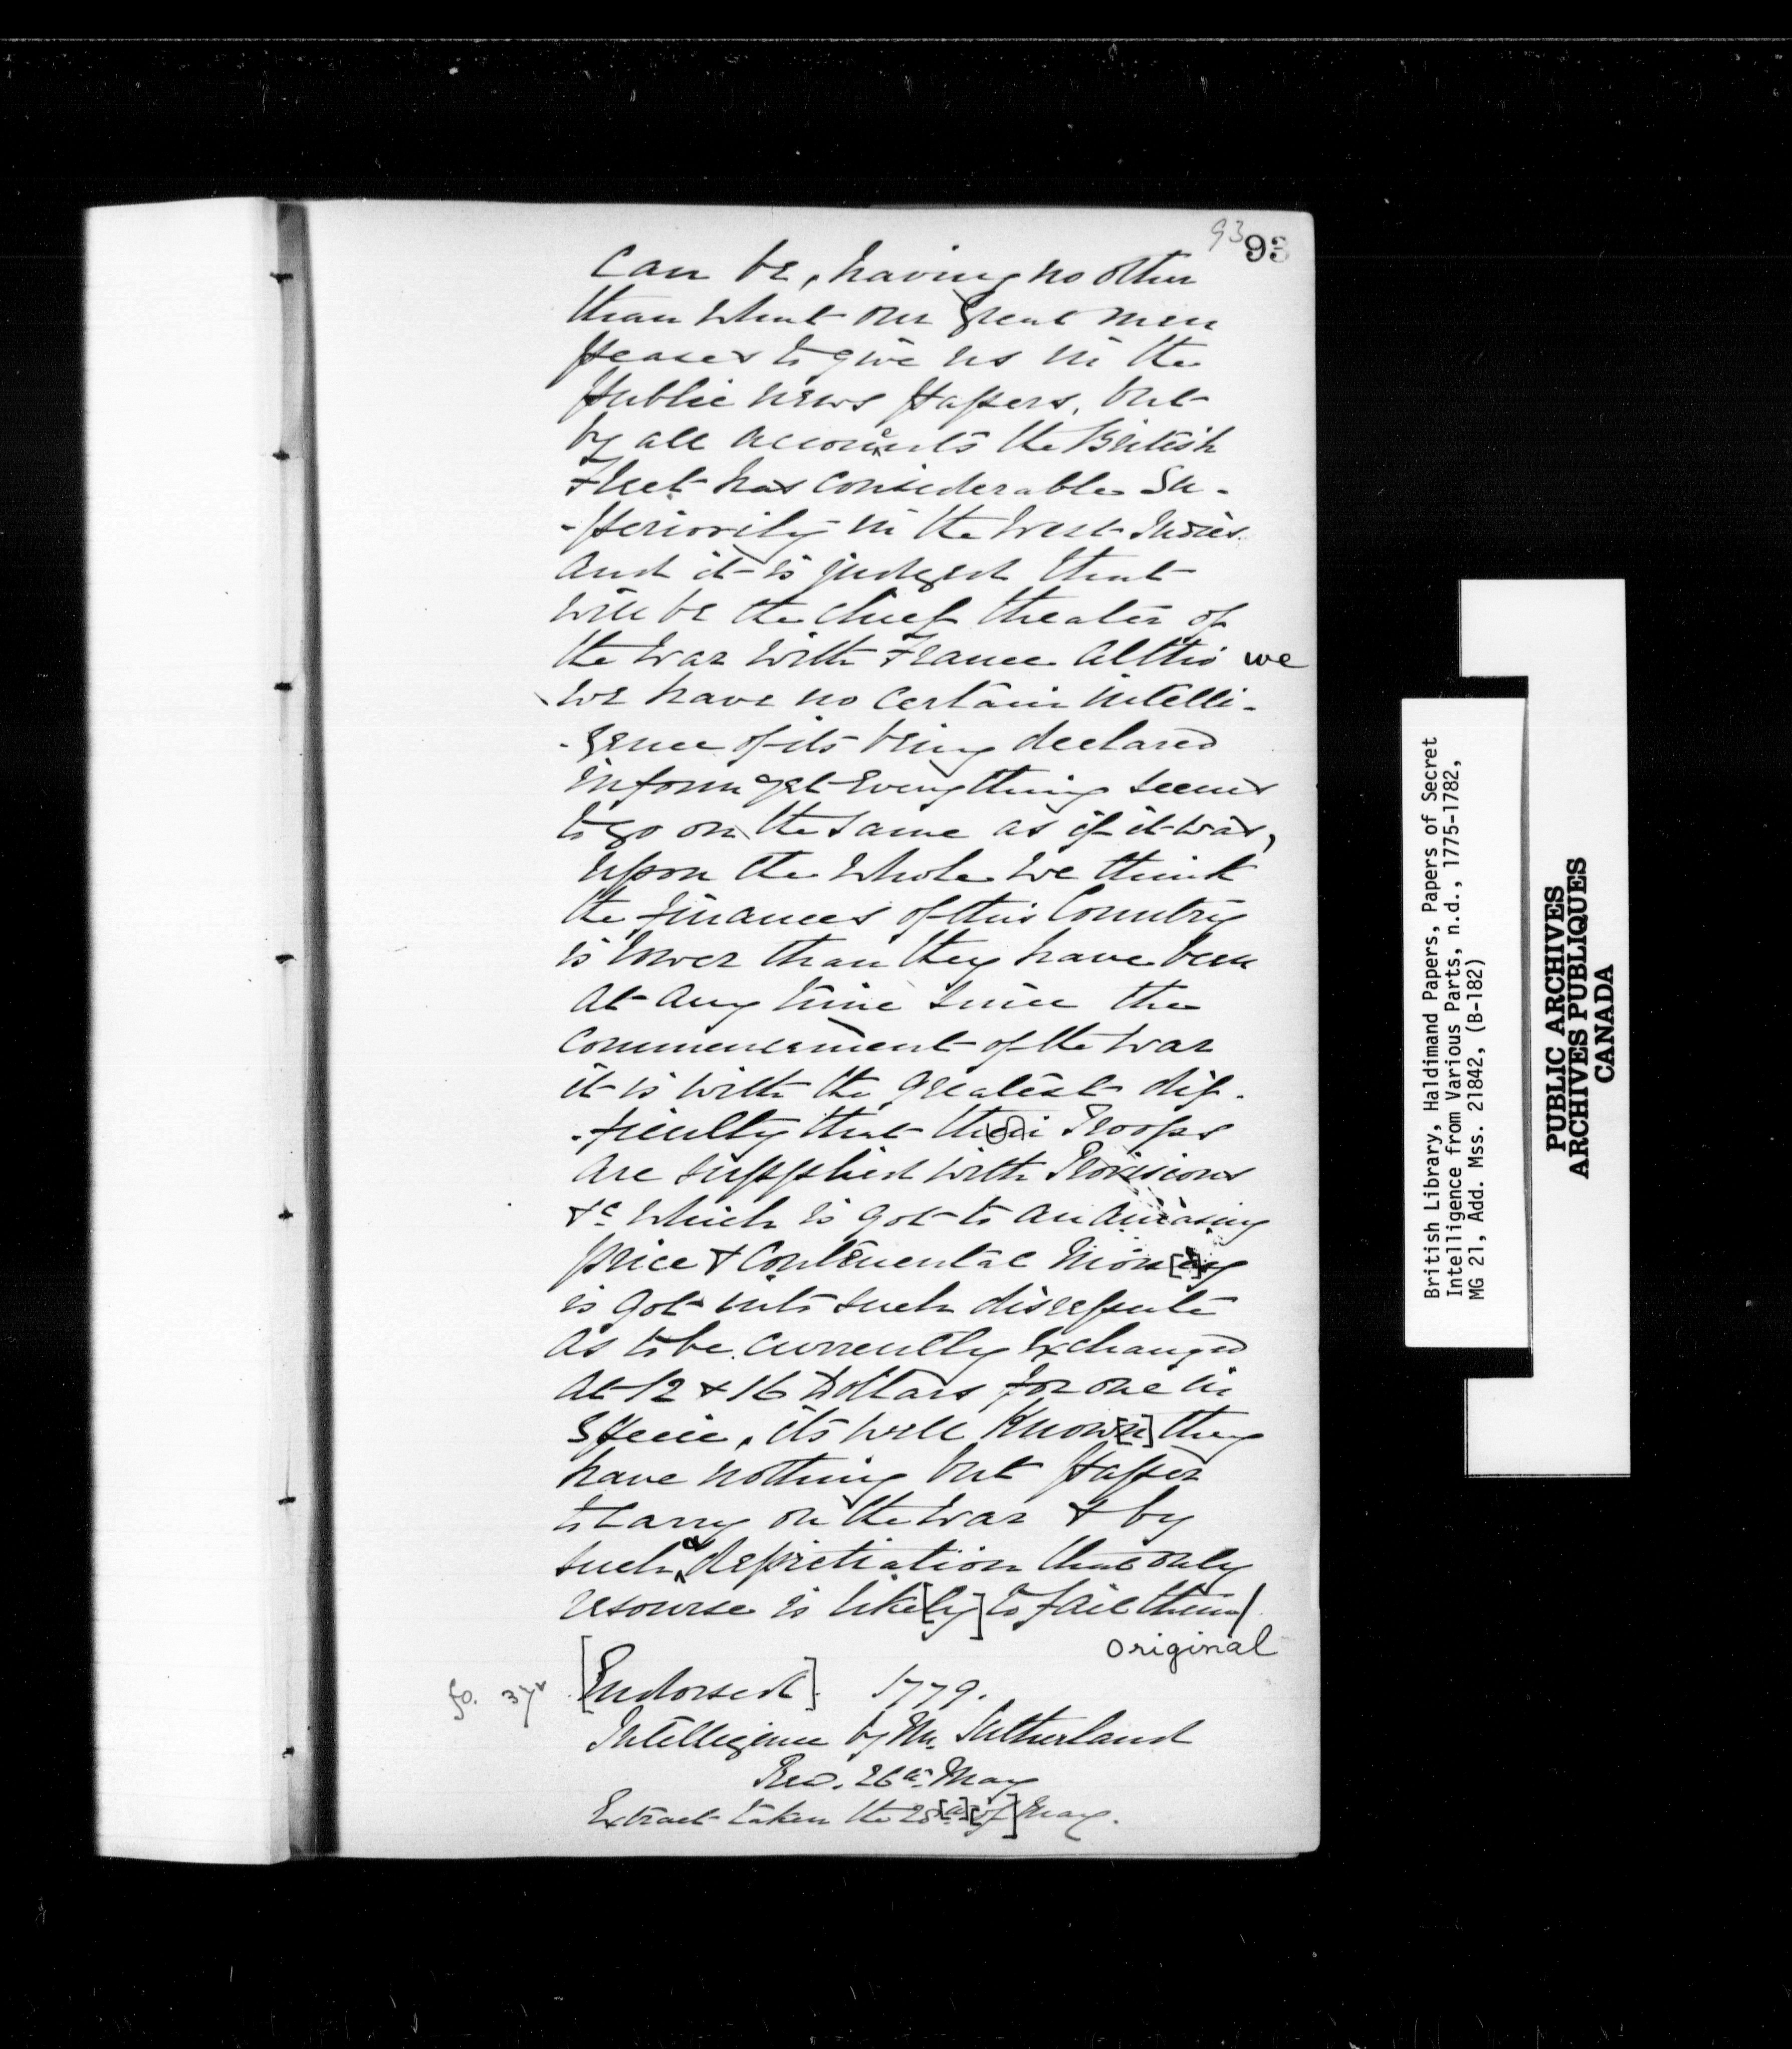 93 93
Can be, having no other
than what our great men
pleases to give us in the
public news papers, but
by all accounts the British
Fleet has considerable Su-
-periority in the West Indies.
And it is judged that
will be the chief theater of
the War with France altho we
we have no certain intelli-
-gence of its being declared
in form yet Every thing seems
to go on the same as if it was,
upon the whole We think
the finances of this Country
is lower than they have been
at any time since the
commencement of the War
it is with the greatest dif-
-ficulty that their Troops
are supplied with Provisions
&c which is got to an amasing
price & Continental Mon[e]y
is got into such disrepute
as to be currently exchanged
at 12 & 16 Dollars for one in
Specie, its well know[n] they
have nothing but paper
to carry on the War & by
such a depretiation that only
resourse is like[ly] to fail them/
original
fo. 37v [Endorsed] 1779.
Intelligence by Mr. Sutherland
Recd. 26th May
Extract taken the 28[th] [of] May.
British Library, Haldimand Papers, Papers of Secret
Intelligence from Various Parts, n.d., 1775-1782,
MG 21, Add. Mss. 21842, (B-182)
PUBLIC ARCHIVES
ARCHIVES PUBLIQUES
CANADA